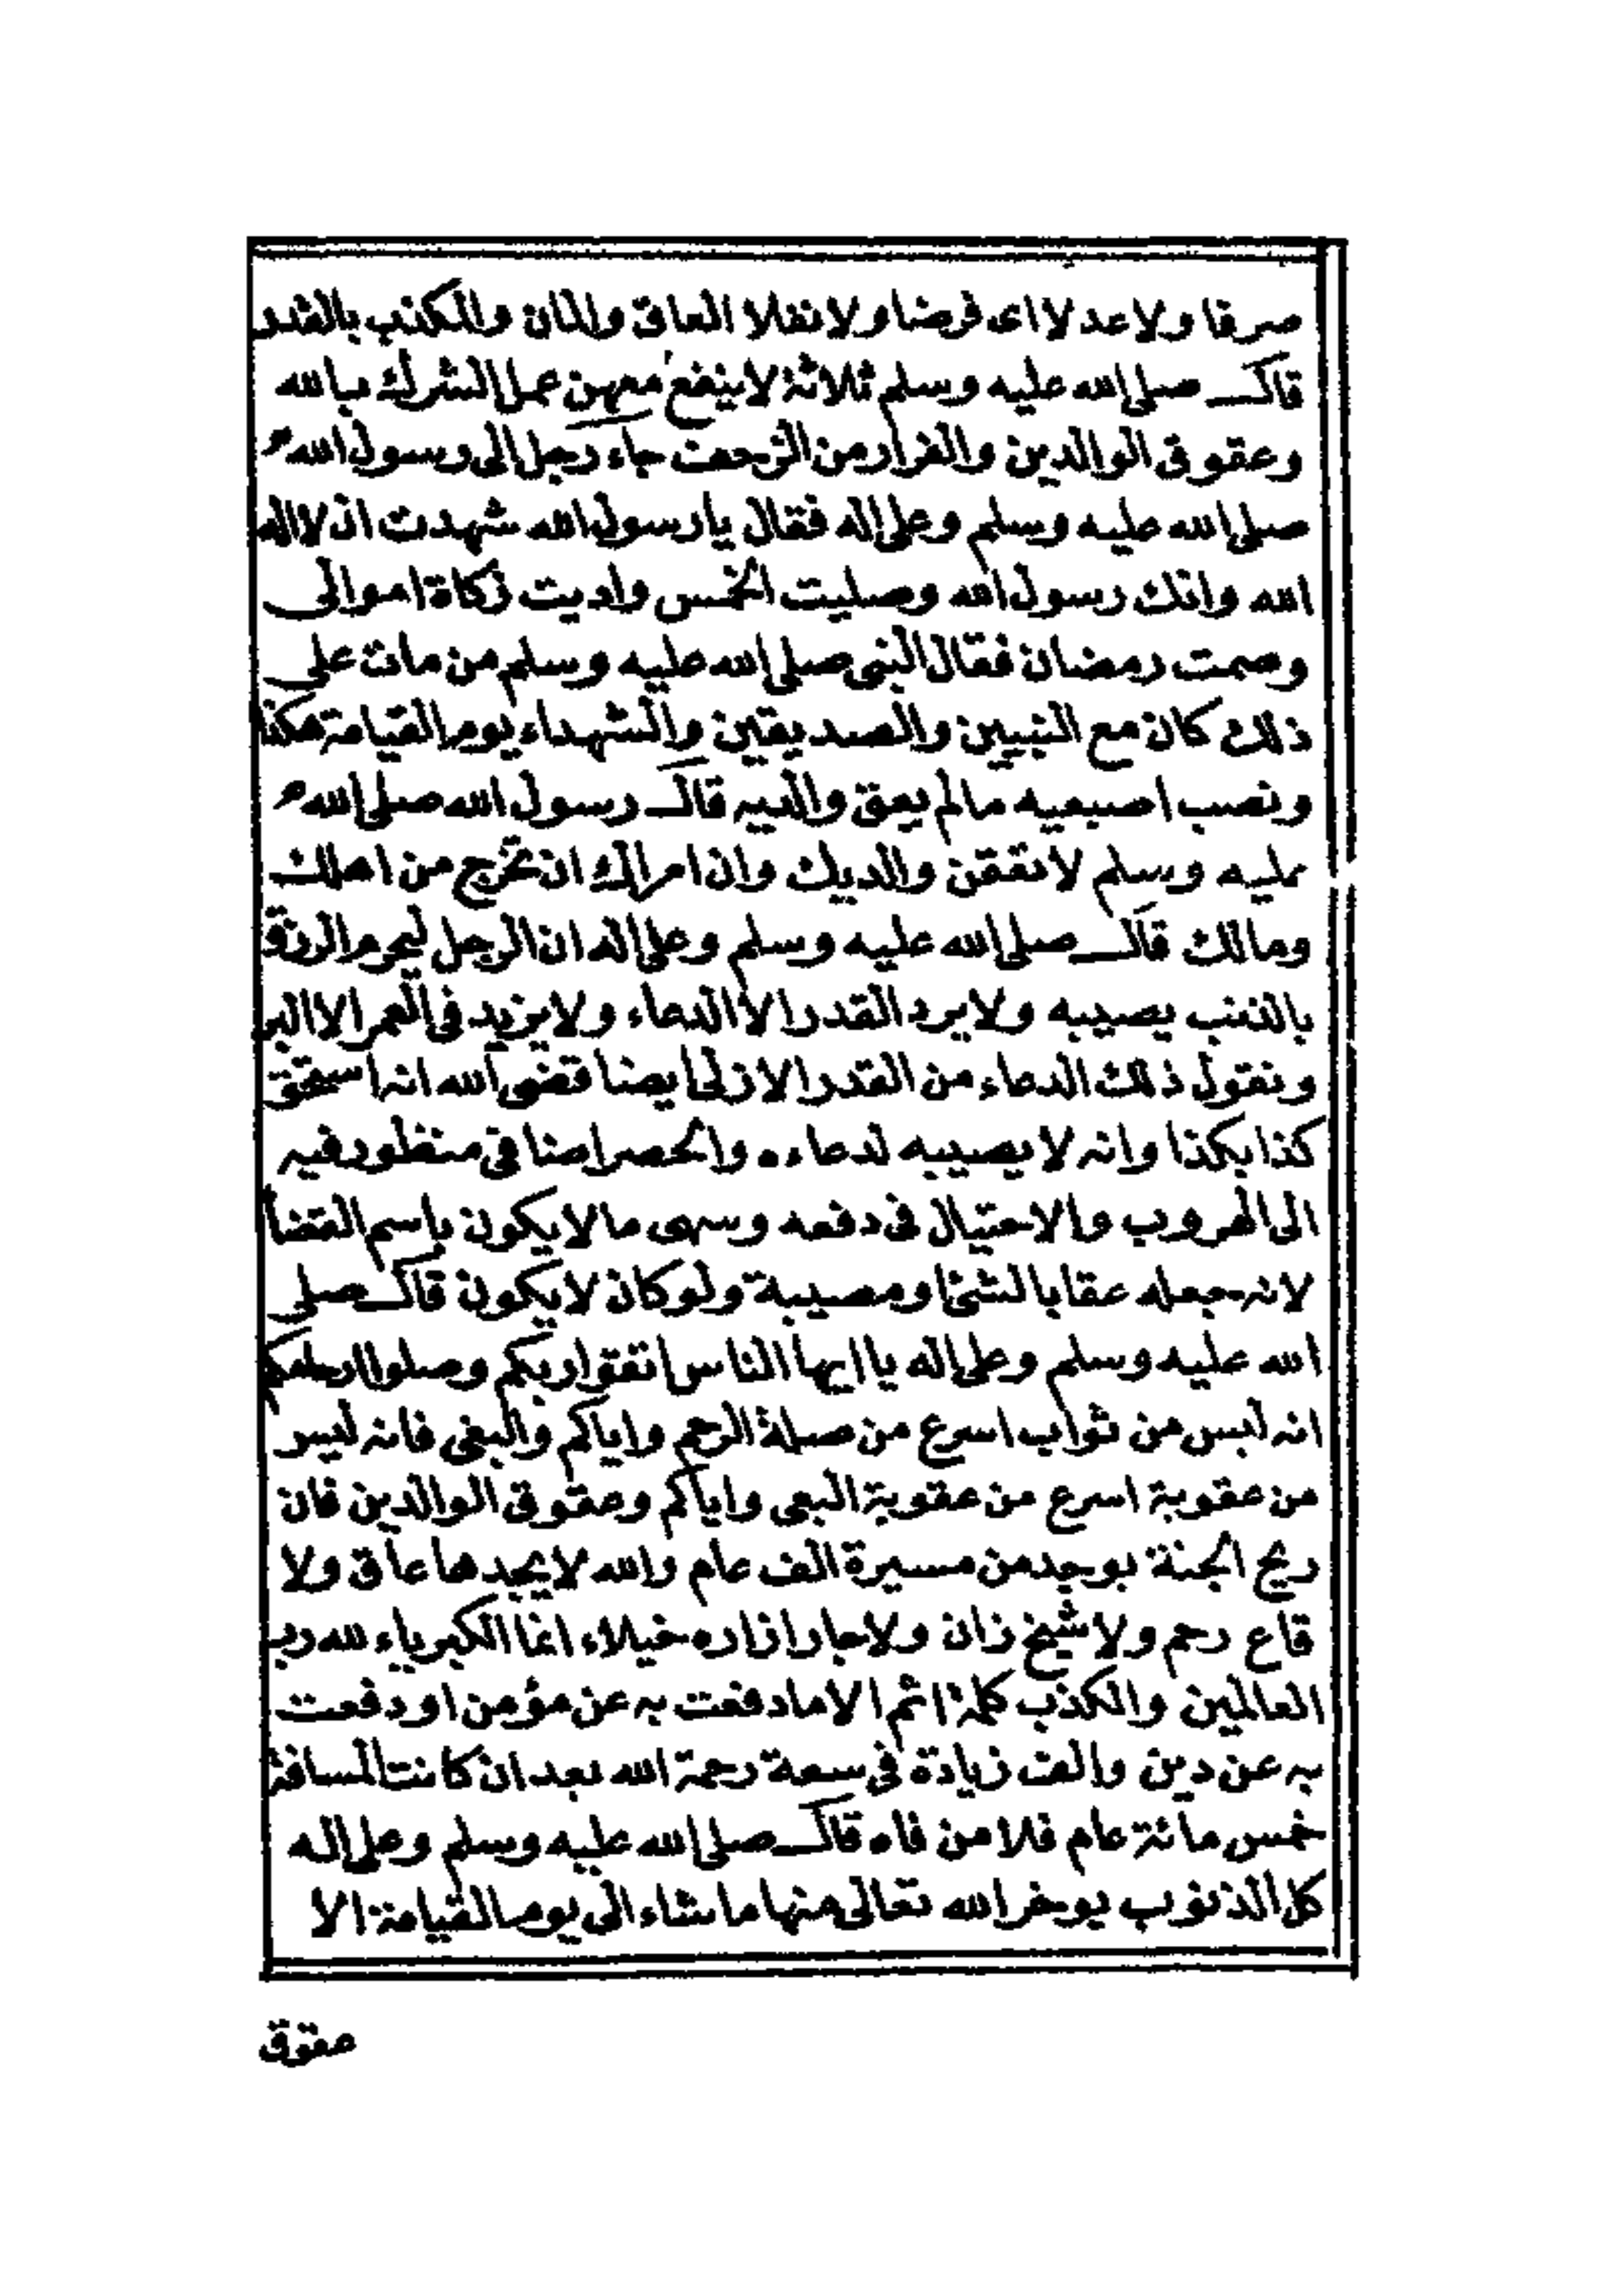 صرفا ولا عدلا اى فرضا ولا نفلا العاق والمان والمكذب بالقدر
قال صلى الله عليه وسلم ثلاثة لا ينفع معهن عمل الشرك بالله
وعقوق الوالدين والفرار من الزحف جاء رجل الى رسول الله
صلى الله عليه وسلم وعلى اله فقال يا رسول الله شهدت ان لا اله
الله وانك رسول الله وصليت الخمس واديت زكاة اموالى
وصمت رمضان فقال النبى صلى الله عليه وسلم من مات على
ذلك كان مع النبيين والصديقين والشهداء يوم القيامة هكذا
ونصب اصبعيه مالم يعق والديه قال رسول الله صلى الله
عليه وسلم لا تعقن والديك وان امراك ان تخرج من اهلك
ومالك قال صلى الله عليه وسلم وعلى اله ان الرجل ليحرم الرزق
بالذنب يصيبه ولا يرد القدر الا الدعاء ولا يزيد فى العمر الا البر
ونقول ذلك الدعاء من القدر الازلى ايضا قضى الله انه استحق
كذا بكذا وانه لا يصيبه لدعاءه والحصر اضافى منظور فيه
الى الهروب والاحتيال فى دفعه وسمى ما لا يكون باسم القضا
لانه جعله عقابا لشئ او مصيبة ولو كان لا يكون قال صلى
الله عليه وسلم وعلى اله يا ايها الناس اتقوا ربكم وصلوا ارحامكم
انه ليس من ثواب اسرع من صلة الرحم واياكم والبغى فانه ليس
من عقوبة اسرع من عقوبة البغى واياكم وعقوق الوالدين فان
ريح الجنة يوجد من مسيرة الف عام والله لا يجدها عاق ولا
قاع رحم ولا شيخ زان ولا جار ازاره خيلاء انما الكبرياء لله رب
العالمين والكذب كله اثم الا ما دفعت به عن مؤمن او دفعت
به عن دين والف زيادة فى سعة رحمة الله بعد ان كانت المسافة
خمس مائة عام فلا من فاه قال صلى الله عليه وسلم وعلى اله
كل الذنوب يوخر الله تعالى منها ما شاء الى يوم القيامة الا
عقوق